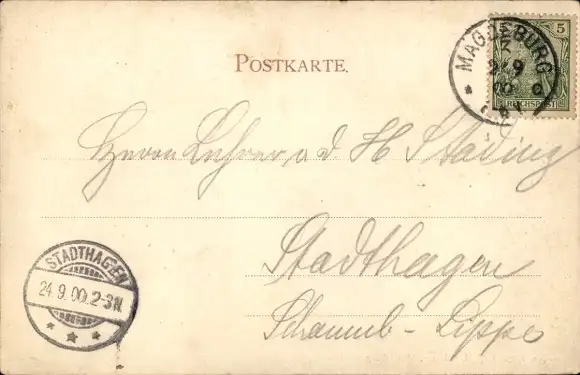 POSTKARTE.
5
REICHSPOST
MAGDEBURG
24 9
00
Herrn Lehrer a. d. H Stading
Stadthagen
Schaumb-Lippe
STADTHAGEN
24.9.00.2-3N.
* * *